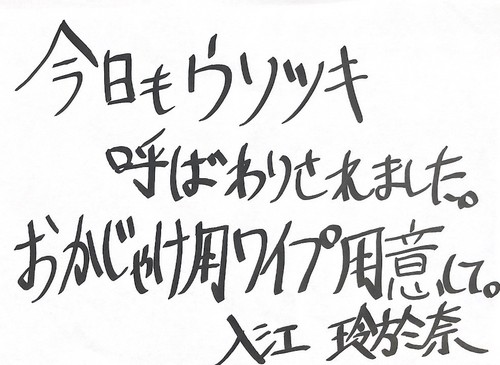 今日もウソツキ
呼ばわりされました。
おかじゃけ用ワイプ用意して。
入江 玲於奈